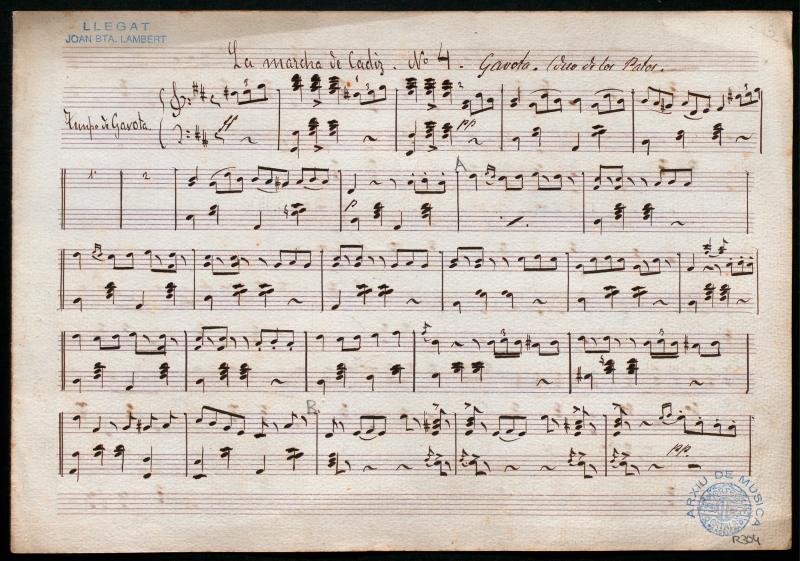 LLEGAT
JOAN BTA. LAMBERT
La marcha de Cadiz. Nº 4. Gavota. (duo de los Patos.
Tempo de Gavota.
ff
pp
1ª 2
p
A
B
pp.
ARXIU DE MÚSICA
R304